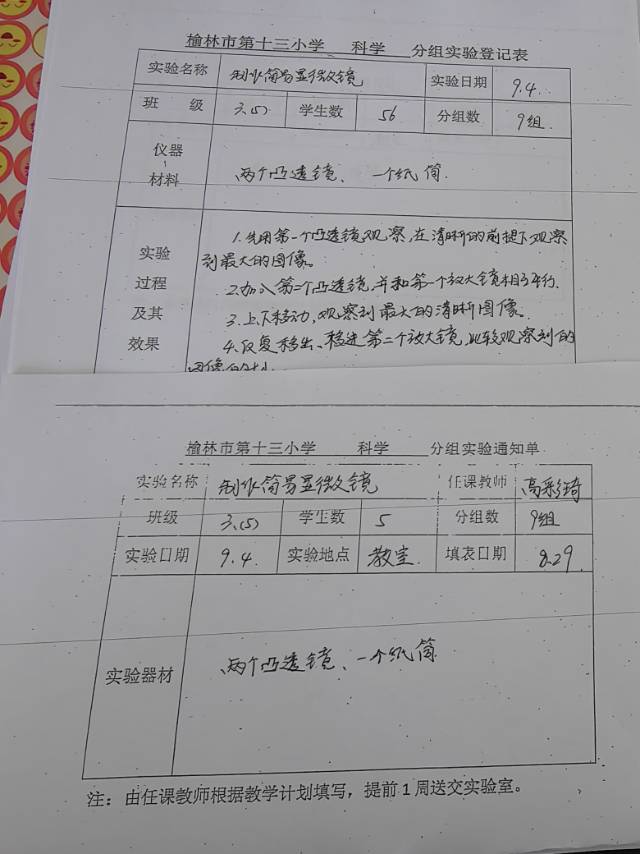 榆林市第十三小学 科学 分组实验登记表
实验名称 制作简易显微镜 实验日期 9.4.
班 级 3.(5) 学生数 56 分组数 9组.
仪器、材料 两个凸透镜、一个纸筒.
实验过程及其效果
1.先用第一个凸透镜观察,在清晰的前提下观察
到最大的图像。
2.加入第二个凸透镜,并和第一个放大镜相互平行.
3.上下移动,观察到最大的清晰图像.
4.反复移出、移进第二个放大镜,比较观察到的
图像的
榆林市第十三小学 科学 分组实验通知单
实验名称 制作简易显微镜 任课教师 高彩琦
班级 3.(5) 学生数 5 分组数 9组
实验日期 9.4. 实验地点 教室. 填表日期 8.29.
实验器材 两个凸透镜、一个纸筒
注:由任课教师根据教学计划填写,提前1周送交实验室。